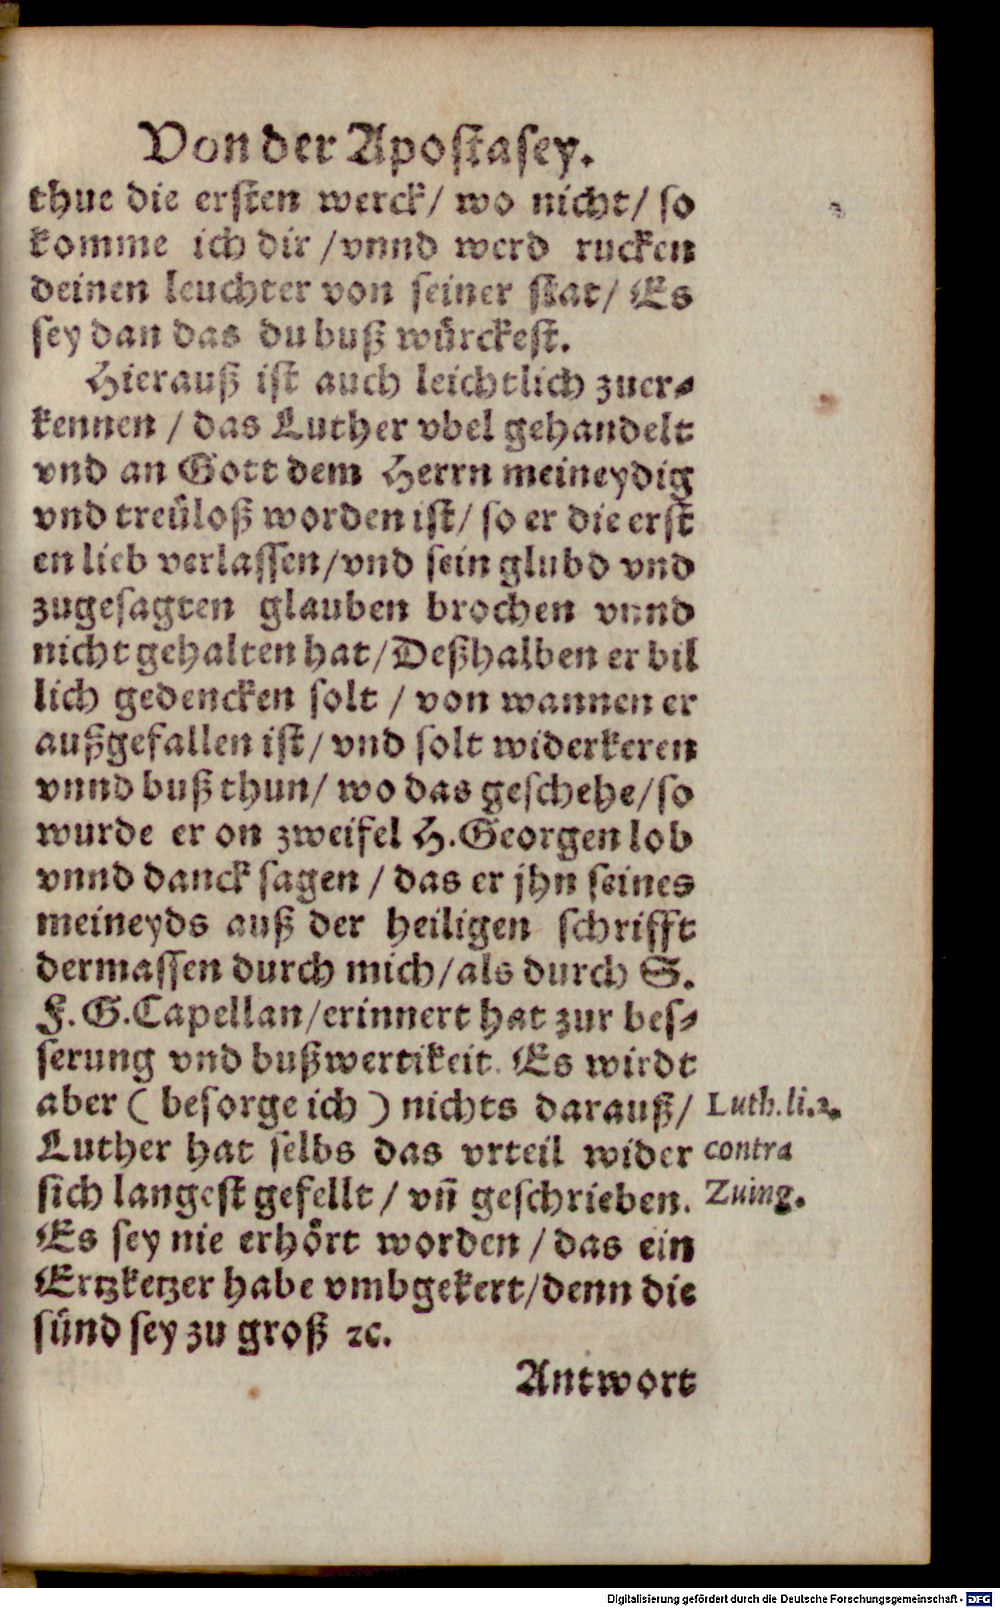 Von der Apostasey.
thue die ersten werck/ wo nicht/ so
komme ich dir /vnnd werd rucken
deinen leuchter von seiner stat/ Es
sey dan das du buß würckest.
Hierauß ist auch leichtlich zuer⸗
kennen / das Luther vbel gehandelt
vnd an Gott dem Herrn meineydig
vnd treüloß worden ist/ so er die erst
en lieb verlassen/vnd sein glubd vnd
zugesagten glauben brochen vnnd
nicht gehalten hat/Deßhalben er bil
lich gedencken solt / von wannen er
außgefallen ist/ vnd solt widerkeren
vnnd buß thun/ wo das geschehe/so
wurde er on zweifel H.Georgen lob
vnnd danck sagen / das er jhn seines
meineyds auß der heiligen schrifft
dermassen durch mich/als durch S.
F.G.Capellan/erinnert hat zur bes⸗
serung vnd bußwertikeit. Es wirdt
aber ( besorge ich ) nichts darauß/
Luther hat selbs das vrteil wider
sich langest gefellt / vñ geschrieben.
Es sey nie erhört worden / das ein
Ertzketzer habe vmbgekert/denn die
sünd sey zu groß ꝛc.
Antwort
Luth.li.2.
contra
Zuing.
Digitalisierung gefördert durch die Deutsche Forschungsgemeinschaft - DFG